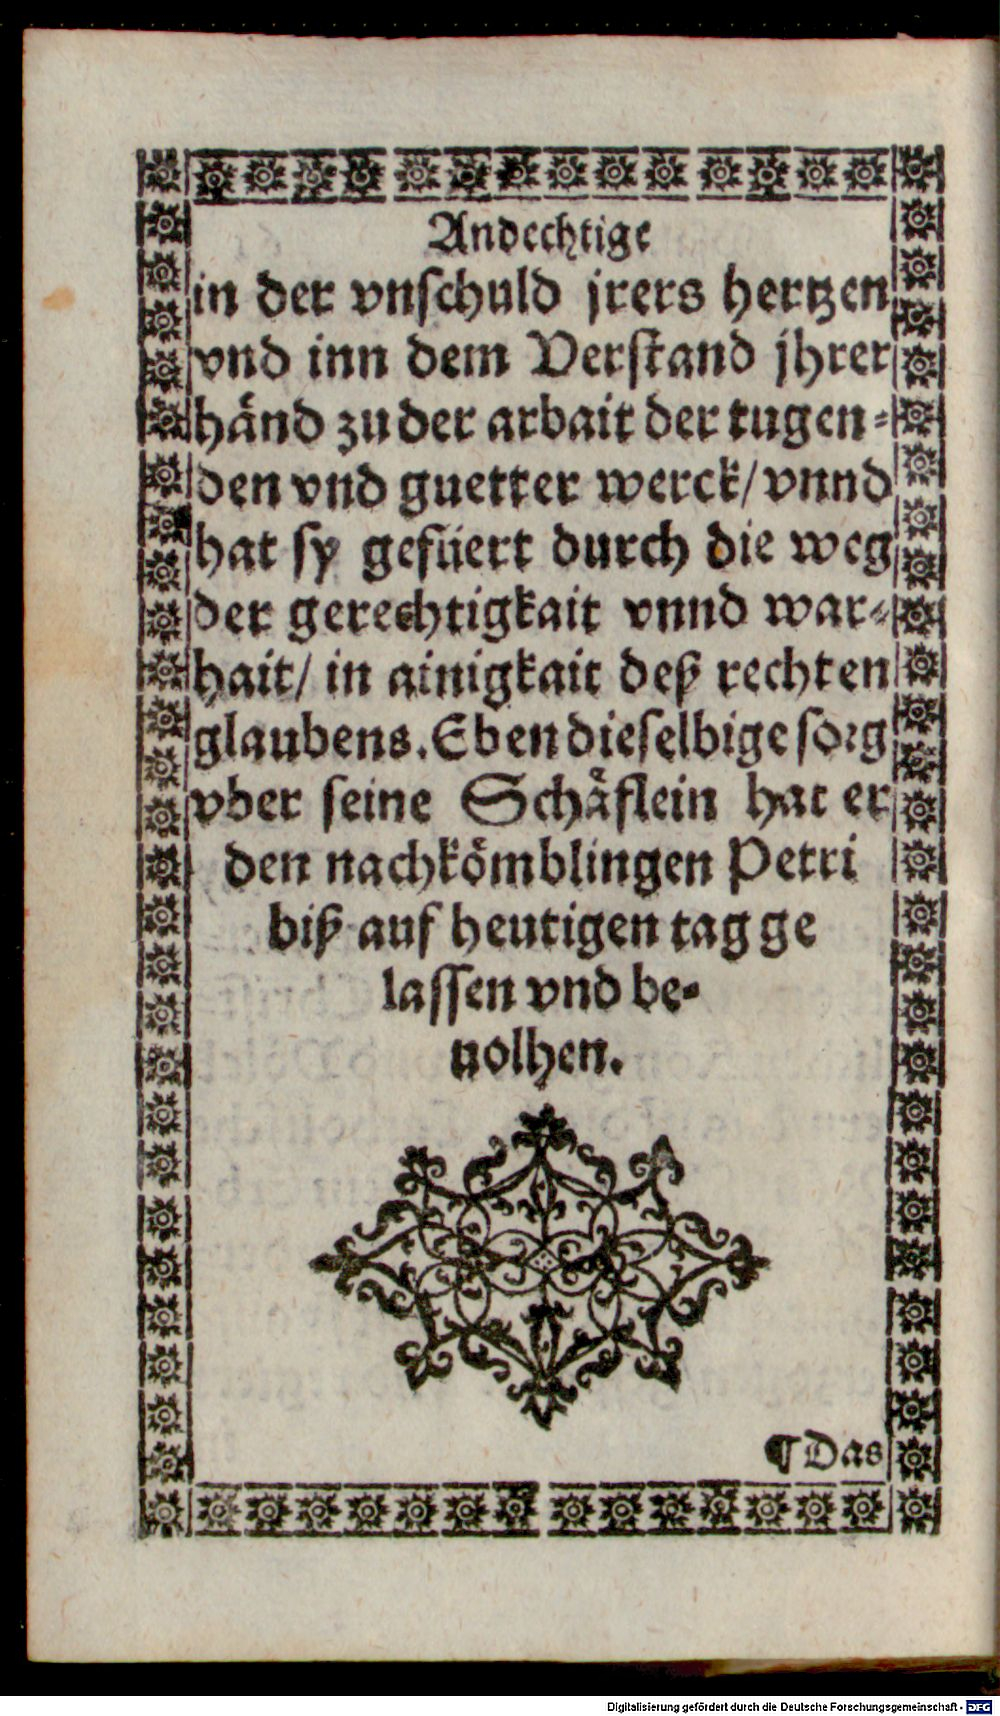 Andechtige
in der vnschuld jrers hertzen
vnd inn dem Verstand jhrer
hånd zu der arbait der tugen-
den vnd guetter werck/ vnnd
hat sy gefüert durch die weg
der gerechtigkait vnnd war-
hait/ in ainigkait deß rechten
glaubens. Eben dieselbige sorg
vber seine Schåflein hat er
den nachkömblingen Petri
biß auf heutigen tag ge
lassen vnd be-
uolhen.
¶ Das
Digitalisierung gefördert durch die Deutsche Forschungsgemeinschaft - DFG